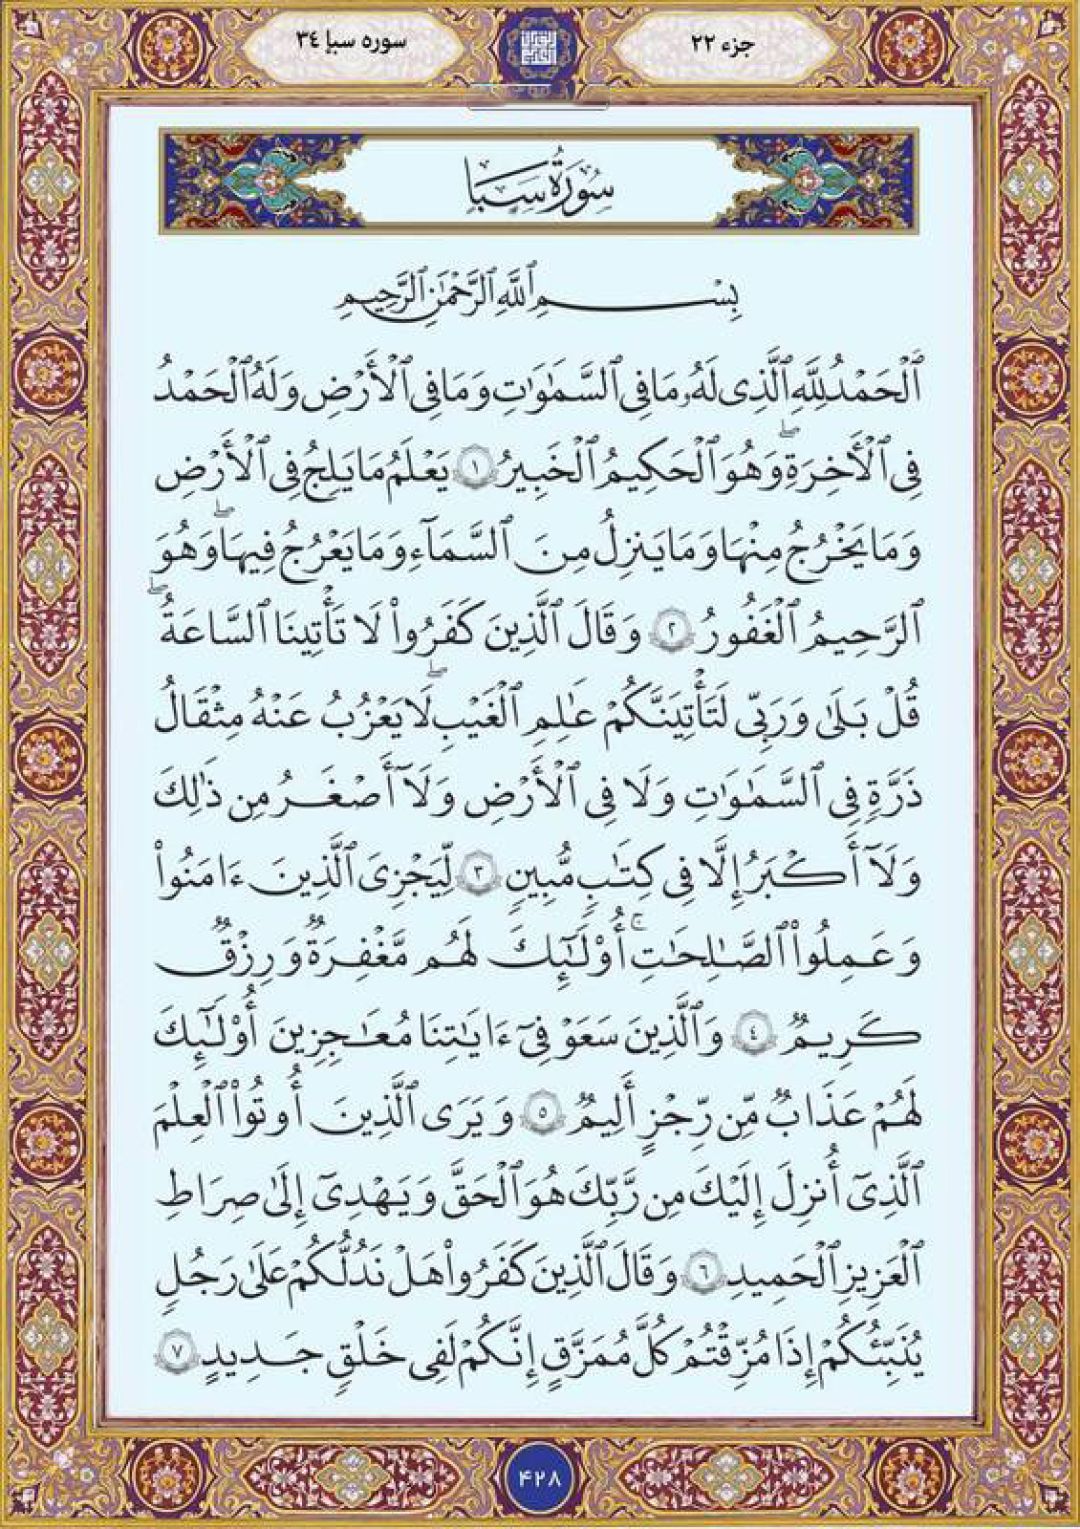 جزء ۲۲
سوره سبإ ۳۴
سُورَةُ سَبَإ
بِسْمِ ٱللَّهِ ٱلرَّحْمَٰنِ ٱلرَّحِيمِ
ٱلْحَمْدُ لِلَّهِ ٱلَّذِى لَهُۥ مَا فِى ٱلسَّمَٰوَٰتِ وَمَا فِى ٱلْأَرْضِ وَلَهُ ٱلْحَمْدُ
فِى ٱلْأَخِرَةِ ۖ وَهُوَ ٱلْحَكِيمُ ٱلْخَبِيرُ ١ يَعْلَمُ مَا يَلِجُ فِى ٱلْأَرْضِ
وَمَا يَخْرُجُ مِنْهَا وَمَا يَنزِلُ مِنَ ٱلسَّمَآءِ وَمَا يَعْرُجُ فِيهَا ۖ وَهُوَ
ٱلرَّحِيمُ ٱلْغَفُورُ ٢ وَقَالَ ٱلَّذِينَ كَفَرُوا۟ لَا تَأْتِينَا ٱلسَّاعَةُ ۖ
قُلْ بَلَىٰ وَرَبِّى لَتَأْتِيَنَّكُمْ عَٰلِمِ ٱلْغَيْبِ ۖ لَا يَعْزُبُ عَنْهُ مِثْقَالُ
ذَرَّةٍ فِى ٱلسَّمَٰوَٰتِ وَلَا فِى ٱلْأَرْضِ وَلَآ أَصْغَرُ مِن ذَٰلِكَ
وَلَآ أَكْبَرُ إِلَّا فِى كِتَٰبٍ مُّبِينٍ ٣ لِّيَجْزِىَ ٱلَّذِينَ ءَامَنُوا۟
وَعَمِلُوا۟ ٱلصَّٰلِحَٰتِ ۚ أُو۟لَٰٓئِكَ لَهُم مَّغْفِرَةٌ وَرِزْقٌ
كَرِيمٌ ٤ وَٱلَّذِينَ سَعَوْ فِىٓ ءَايَٰتِنَا مُعَٰجِزِينَ أُو۟لَٰٓئِكَ
لَهُمْ عَذَابٌ مِّن رِّجْزٍ أَلِيمٌ ٥ وَيَرَى ٱلَّذِينَ أُوتُوا۟ ٱلْعِلْمَ
ٱلَّذِىٓ أُنزِلَ إِلَيْكَ مِن رَّبِّكَ هُوَ ٱلْحَقَّ وَيَهْدِىٓ إِلَىٰ صِرَاطِ
ٱلْعَزِيزِ ٱلْحَمِيدِ ٦ وَقَالَ ٱلَّذِينَ كَفَرُوا۟ هَلْ نَدُلُّكُمْ عَلَىٰ رَجُلٍ
يُنَبِّئُكُمْ إِذَا مُزِّقْتُمْ كُلَّ مُمَزَّقٍ إِنَّكُمْ لَفِى خَلْقٍ جَدِيدٍ ٧
۴۲۸